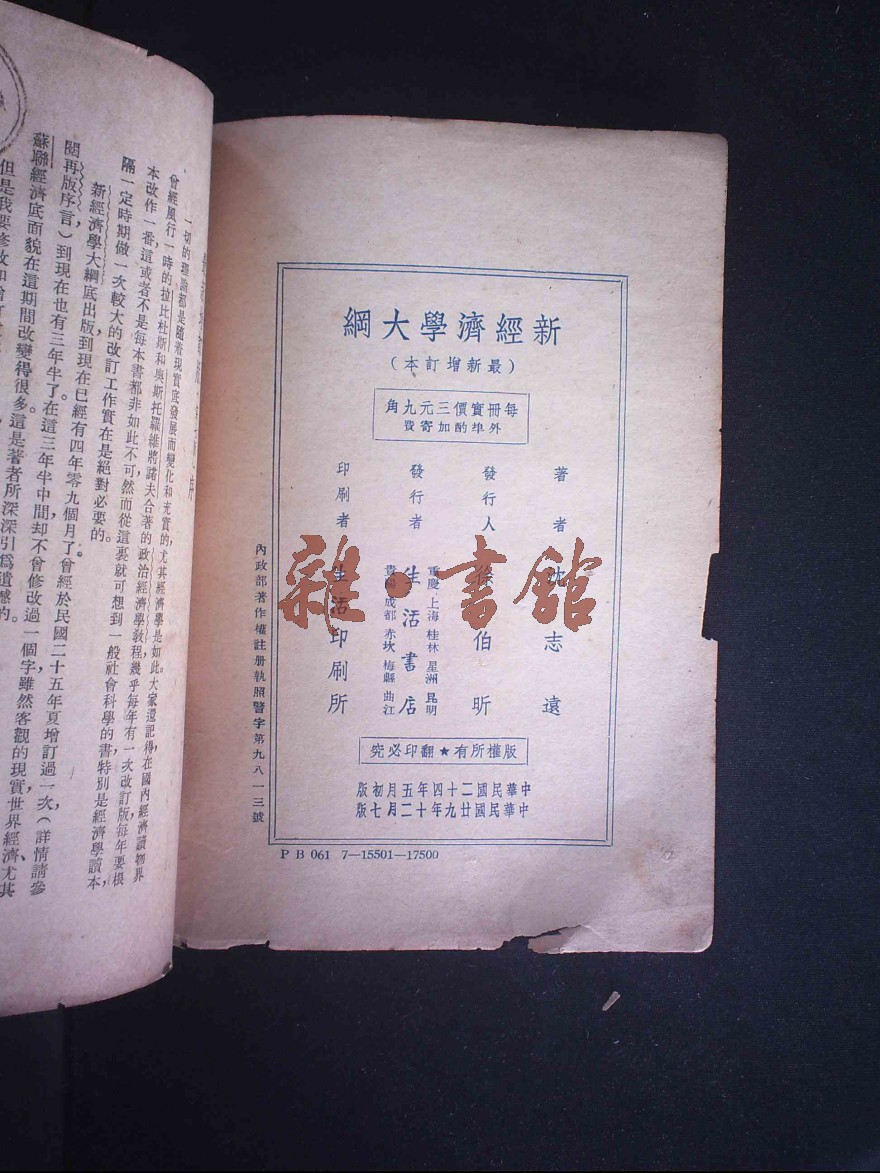 新經濟學大綱
（最新增訂本）
每冊實價三元九角
外埠酌加寄費
著者 沈志遠
發行人 徐伯昕
發行者 生活書店
重慶 上海 桂林 星洲 昆明
貴陽 成都 赤坎 梅縣 曲江
印刷者 生活印刷所
版權所有★翻印必究
中華民國二十四年五月初版
中華民國廿九年十二月七版
內政部著作權註册執照警字第九八一三號
P B 061 7—15501—17500
雜·書館
一切的理論都是隨着現實底發展而變化和充實的，尤其經濟學是如此。大家還記得在國內經濟讀物界
曾經風行一時的拉比杜斯和奧斯托羅維將諾夫合著的政治經濟學敎程幾乎每年有一次改訂版每年要根
本改作一番這或者不是每本書都非如此不可然而從這裏就可想到一般社會科學的書特別是經濟學讀本，
隔一定時期做一次較大的改訂工作實在是絕對必要的。
新經濟學大綱底出版到現在已經有四年零九個月了曾經於民國二十五年夏增訂過一次（詳情請參
閱再版序言）到現在也有三年半了。在這三年半中間却不曾修改過一個字雖然客觀的現實世界經濟、尤其
蘇聯經濟底面貌在這期間改變得很多這是著者所深深引爲遺憾的。
但是我要修改和增訂